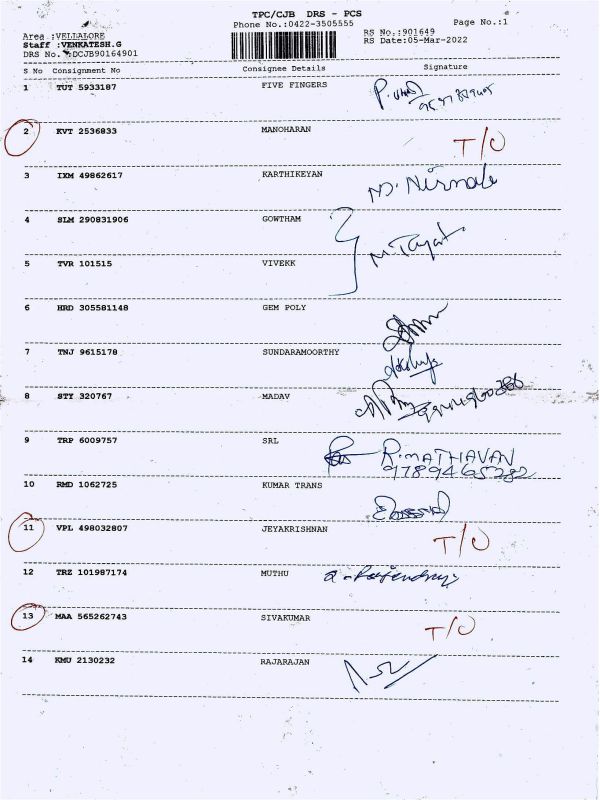 TPC/CJB DRS - PCS
Phone No.:0422-3505555 Page No.:1
Area :VELLALORE
Staff :VENKATESH.G
DRS No. :DCJB90164901
RS No.:901649
RS Date:05-Mar-2022
S No Consignment No Consignee Details Signature
1 TUT 5933187 FIVE FINGERS
2 KVT 2536833 MANOHARAN T/O
3 IXM 49862617 KARTHIKEYAN M. Nirmala
4 SLM 290831906 GOWTHAM
5 TVR 101515 VIVEKK
6 HRD 305581148 GEM POLY
7 TNJ 9615178 SUNDARAMOORTHY
8 STY 320767 MADAV
9 TRP 6009757 SRL R.MATHAVAN
9789465282
10 RMD 1062725 KUMAR TRANS
11 VPL 498032807 JEYAKRISHNAN T/O
12 TRZ 101987174 MUTHU
13 MAA 565262743 SIVAKUMAR T/O
14 KMU 2130232 RAJARAJAN